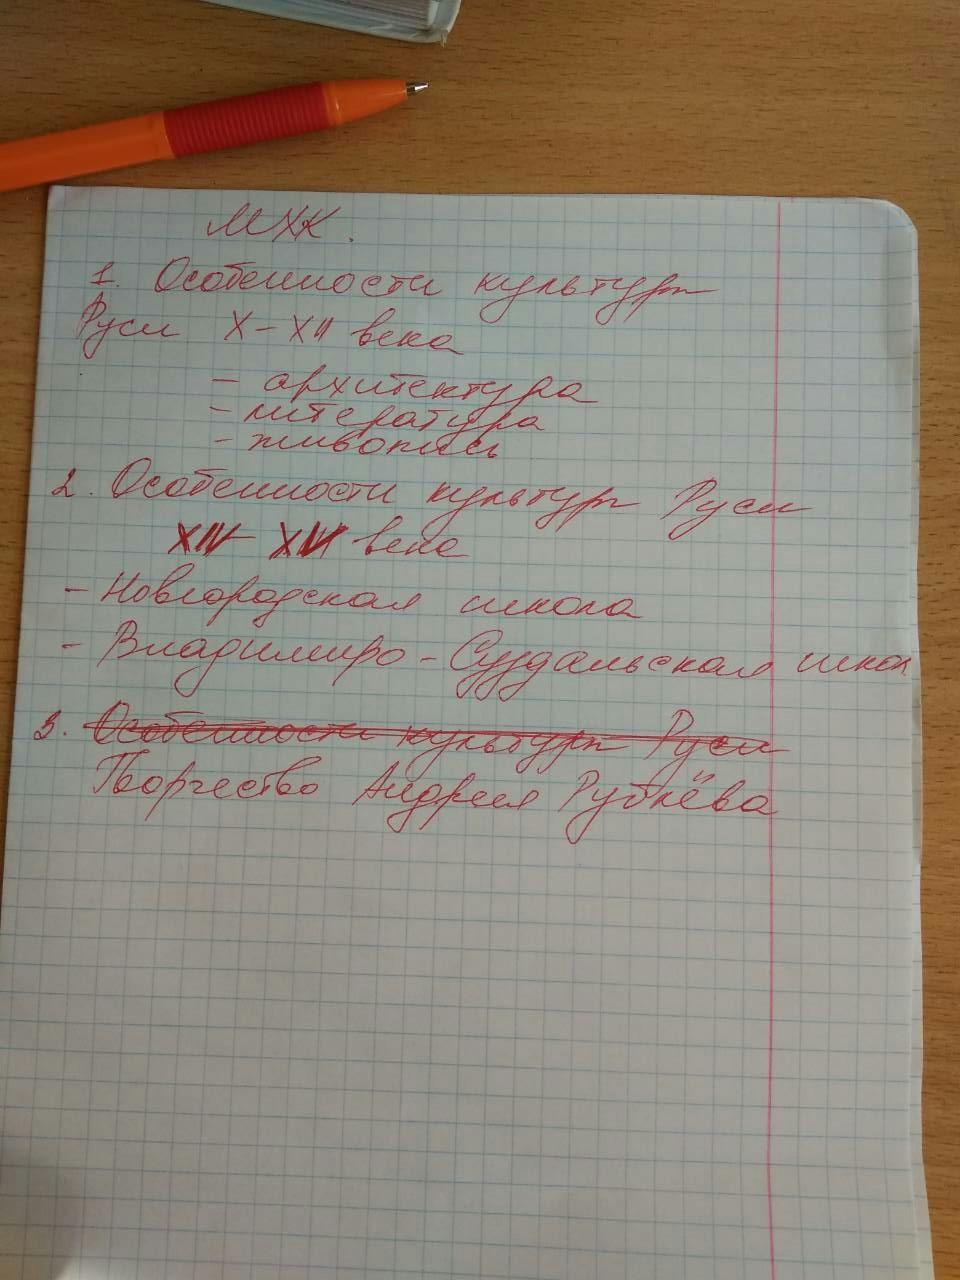 МХК.
1. Особенности культуры
Руси X-XII века
- архитектура
- литература
- живопись
2. Особенности культуры Руси
века
- Новгородская школа
- Владимиро-Суздальская школ
3. Особенности культуры Руси
Творчество Андрея Рублёва